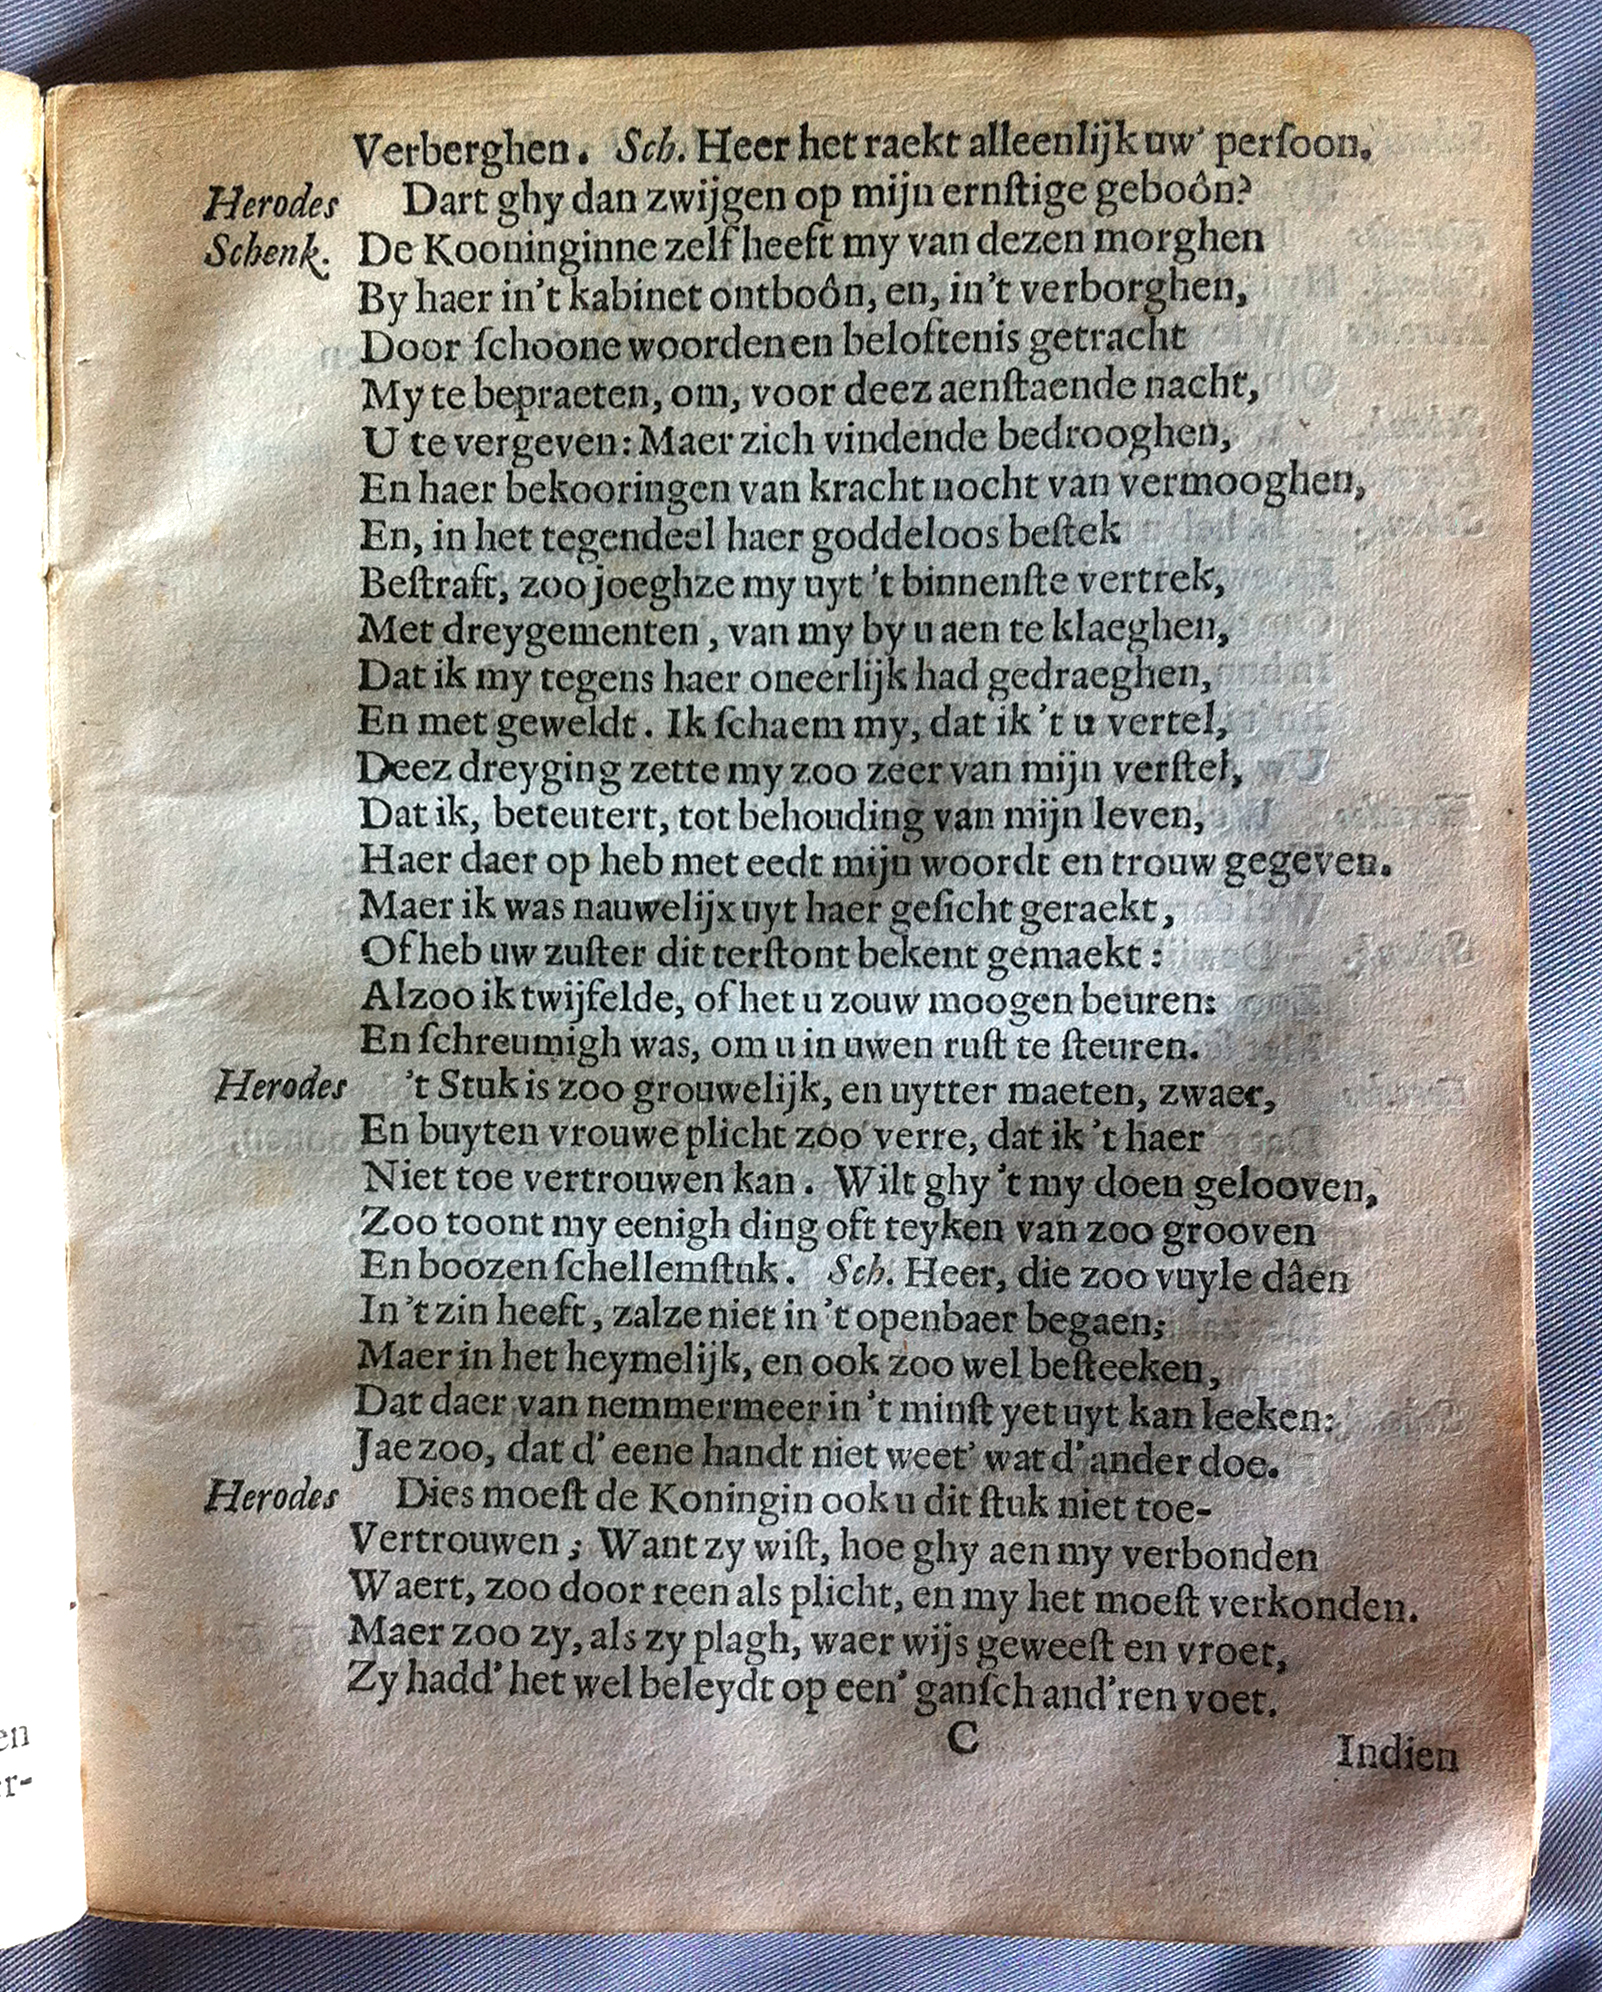 Verberghen. Sch. Heer het raekt alleenlijk uw' perſoon.
Herodes Dart ghy dan zwijgen op mijn ernſtige geboôn?
Schenk. De Kooninginne zelf heeft my van dezen morghen
By haer in't kabinet ontboôn, en, in't verborghen,
Door ſchoone woorden en beloftenis getracht
My te bepraeten, om, voor deez aenſtaende nacht,
U te vergeven: Maer zich vindende bedrooghen,
En haer bekooringen van kracht nocht van vermooghen,
En, in het tegendeel haer goddeloos beſtek
Beſtraft, zoo joeghze my uyt 't binnenſte vertrek,
Met dreygementen, van my by u aen te klaeghen,
Dat ik my tegens haer oneerlijk had gedraeghen,
En met geweldt. Ik ſchaem my, dat ik 't u vertel,
Deez dreyging zette my zoo zeer van mijn verſtel,
Dat ik, beteutert, tot behouding van mijn leven,
Haer daer op heb met eedt mijn woordt en trouw gegeven.
Maer ik was nauwelijx uyt haer geſicht geraekt,
Of heb uw zuſter dit terſtont bekent gemaekt:
Alzoo ik twijfelde, of het u zouw moogen beuren:
En ſchreumigh was, om u in uwen ruſt te ſteuren.
Herodes 't Stuk is zoo grouwelijk, en uytter maeten, zwaer,
En buyten vrouwe plicht zoo verre, dat ik 't haer
Niet toe vertrouwen kan. Wilt ghy 't my doen gelooven,
Zoo toont my eenigh ding oft teyken van zoo grooven
En boozen ſchellemſtuk. Sch. Heer, die zoo vuyle dâen
In 't zin heeft, zalze niet in 't openbaer begaen;
Maer in het heymelijk, en ook zoo wel beſteeken,
Dat daer van nemmermeer in 't minſt yet uyt kan leeken:
Jae zoo, dat d' eene handt niet weet' wat d' ander doe.
Herodes Dies moeſt de Koningin ook u dit ſtuk niet toe-
Vertrouwen; Want zy wiſt, hoe ghy aen my verbonden
Waert, zoo door reen als plicht, en my het moeſt verkonden.
Maer zoo zy, als zy plagh, waer wijs geweeſt en vroet,
Zy hadd' het wel beleydt op een' ganſch and'ren voet.
C
Indien
en
r-